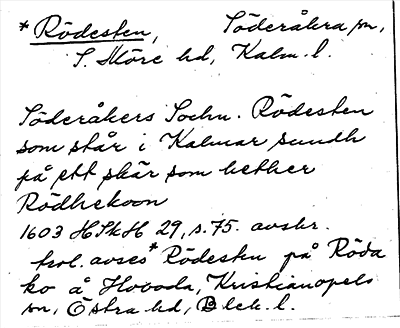 * Rödesten, Söderåkra sn,
S. Möre hd, Kalm. l.
Söderåkers Sochn. Rödesten
som står i Kalmar sundh
på ett skär som hether
Rödhekoon
1603 HSkH 29, s. 75. avskr.
trol. avses *Rödesten på Röda
ko å Hovoda, Kristianopels
sn, Östra hd, Blek. l.